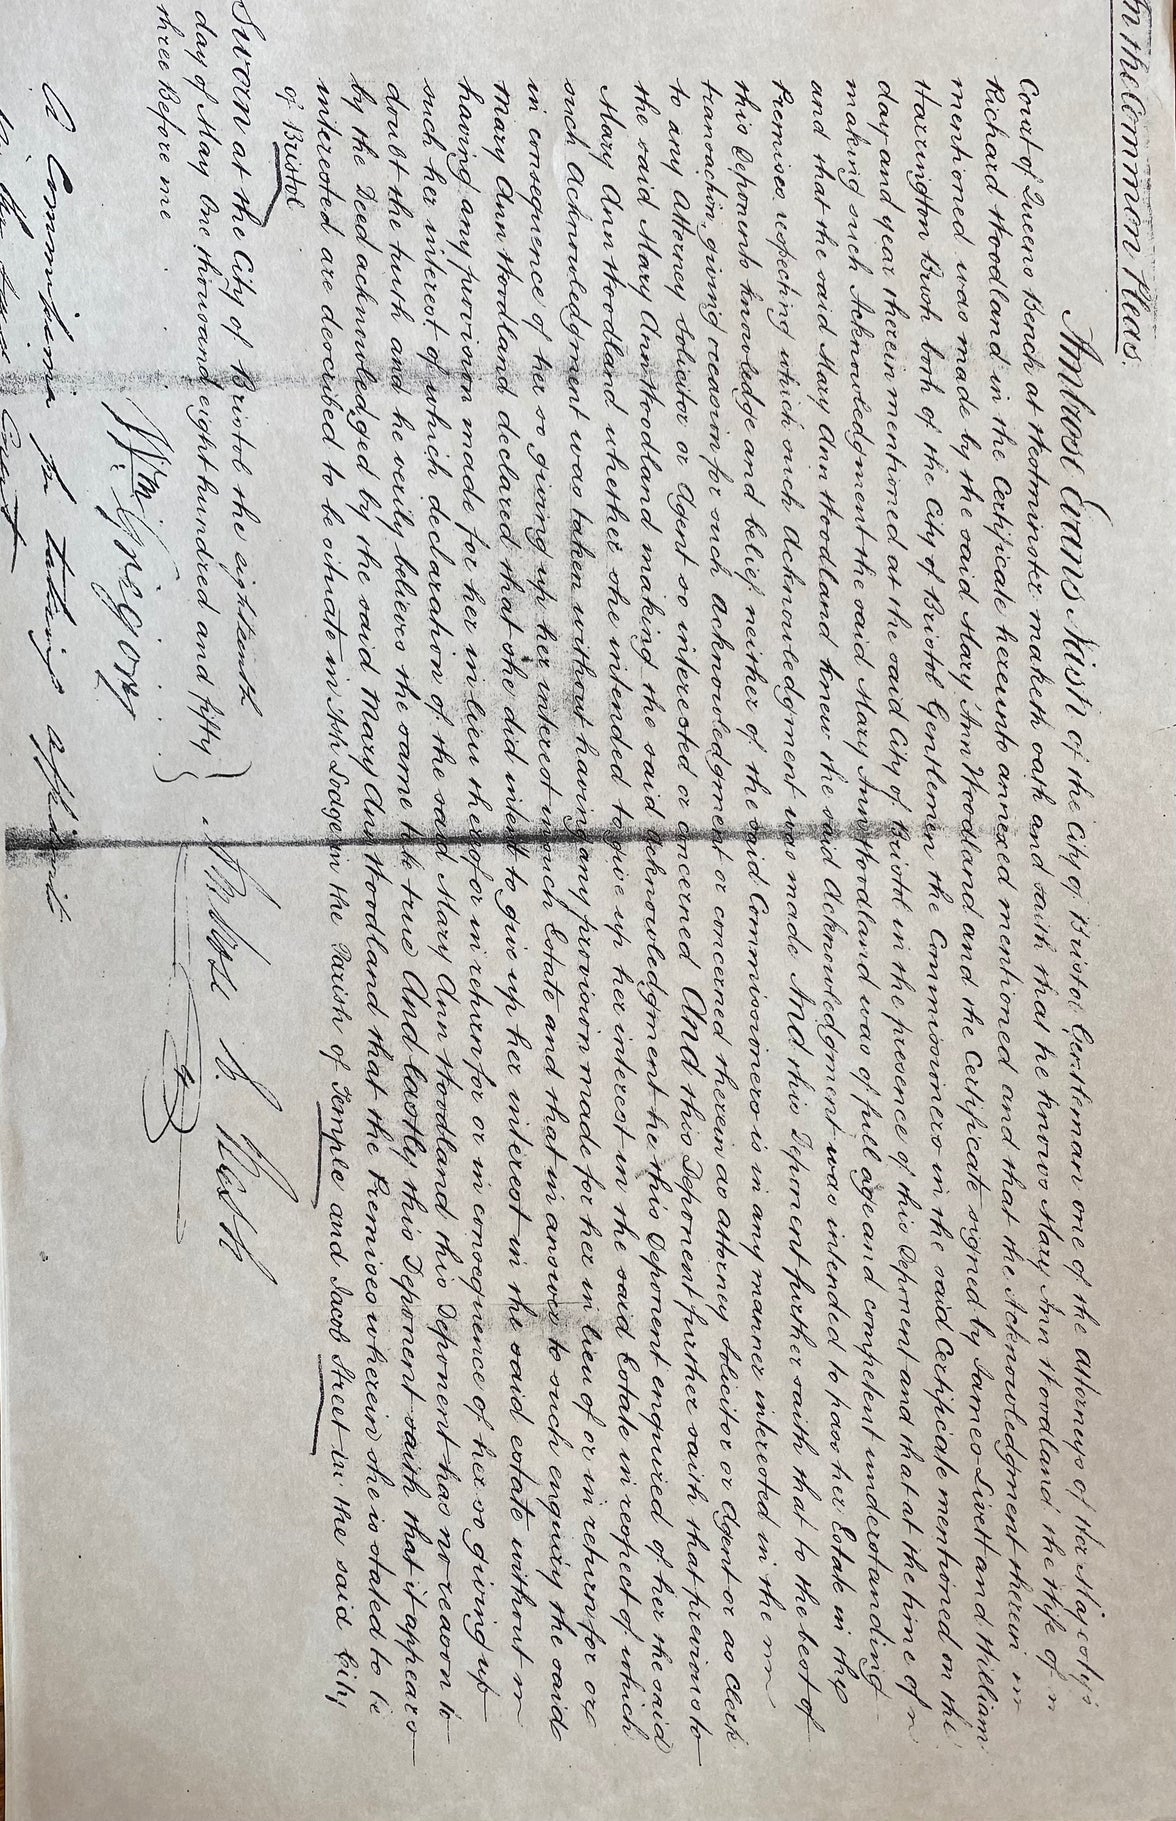 In the Common Pleas.
Ambrose Evans Nash of the City of Bristol Gentleman one of the Attorneys of Her Majesty's
Court of Queens Bench at Westminster maketh oath and saith that he knows Mary Ann Woodland the Wife of
Richard Woodland in the Certificate hereunto annexed mentioned and that the Acknowledgment therein
mentioned was made by the said Mary Ann Woodland and the Certificate signed by James Livett and William
Harrington Bush both of the City of Bristol Gentlemen the Commissioners in the said Certificate mentioned on the
day and year therein mentioned at the said City of Bristol in the presence of this Deponent and that at the time of
making such Acknowledgment the said Mary Ann Woodland was of full age and competent understanding
and that the said Mary Ann Woodland knew the said Acknowledgment was intended to pass her Estate in the
Premises respecting which such Acknowledgment was made And this Deponent further saith that to the best of
this Deponents knowledge and belief neither of the said Commissioners is in any manner interested in the
transaction giving reason for such acknowledgment or concerned therein as Attorney Solicitor or Agent or as Clerk
to any Attorney Solicitor or Agent so interested or concerned And this Deponent further saith that previous to
the said Mary Ann Woodland making the said Acknowledgment he this Deponent enquired of her the said
Mary Ann Woodland whether she intended to give up her interest in the said Estate in respect of which
such Acknowledgment was taken without having any provision made for her in lieu of or in return for or
in consequence of her so giving up her interest in such Estate and that in answer to such enquiry the said
Mary Ann Woodland declared that she did intend to give up her interest in the said estate without
having any provision made for her in lieu therefor in return for or in consequence of her so giving up
such her interest of which declaration of the said Mary Ann Woodland this Deponent has no reason to
doubt the truth and he verily believes the same to be true And lastly this Deponent saith that it appears
by the Deed acknowledged by the said Mary Ann Woodland that the Premises wherein she is stated to be
interested are described to be situate in Ash Lodge in the Parish of Temple and Jacob Street in the said City
of Bristol
Sworn at the City of Bristol the eighteenth
day of May One thousand eight hundred and fifty
three Before me
Ambrose E. Nash
Wm. Gregory
A Commissioner for taking affidavits